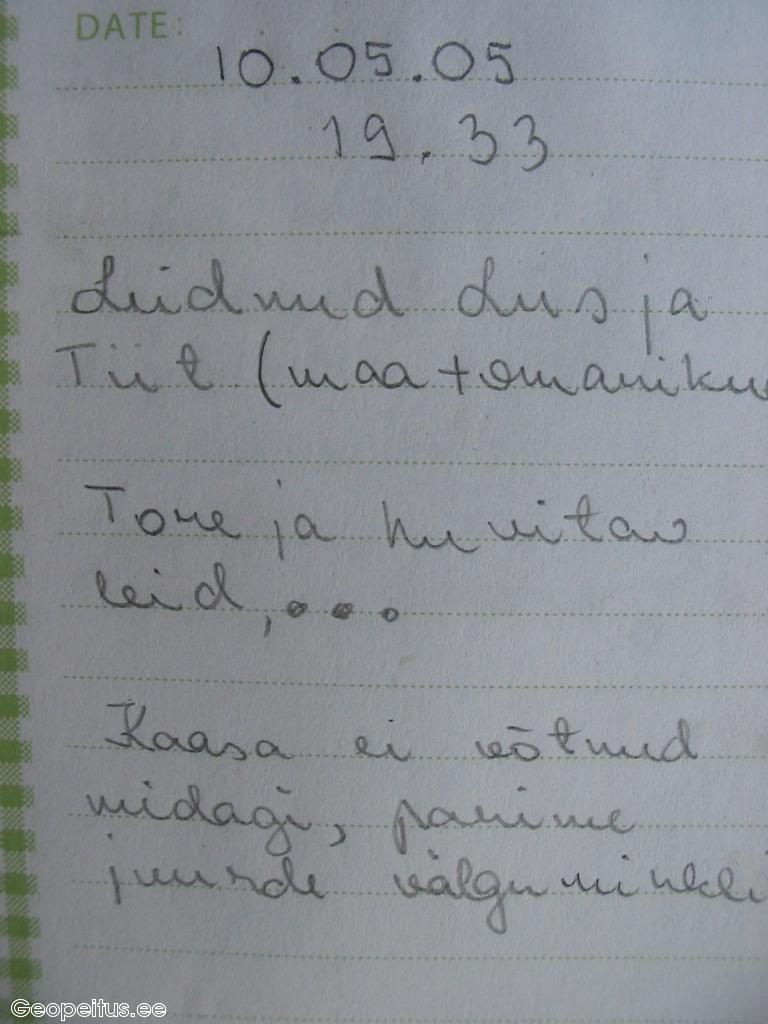 DATE:
10.05.05
19.33
Leidnud Lus ja
Tiit (maa + omaniku
Tore ja huvitav
leid,...
Kaasa ei võtnud
midagi, panime
juurde välgu
Geopeitus.ee